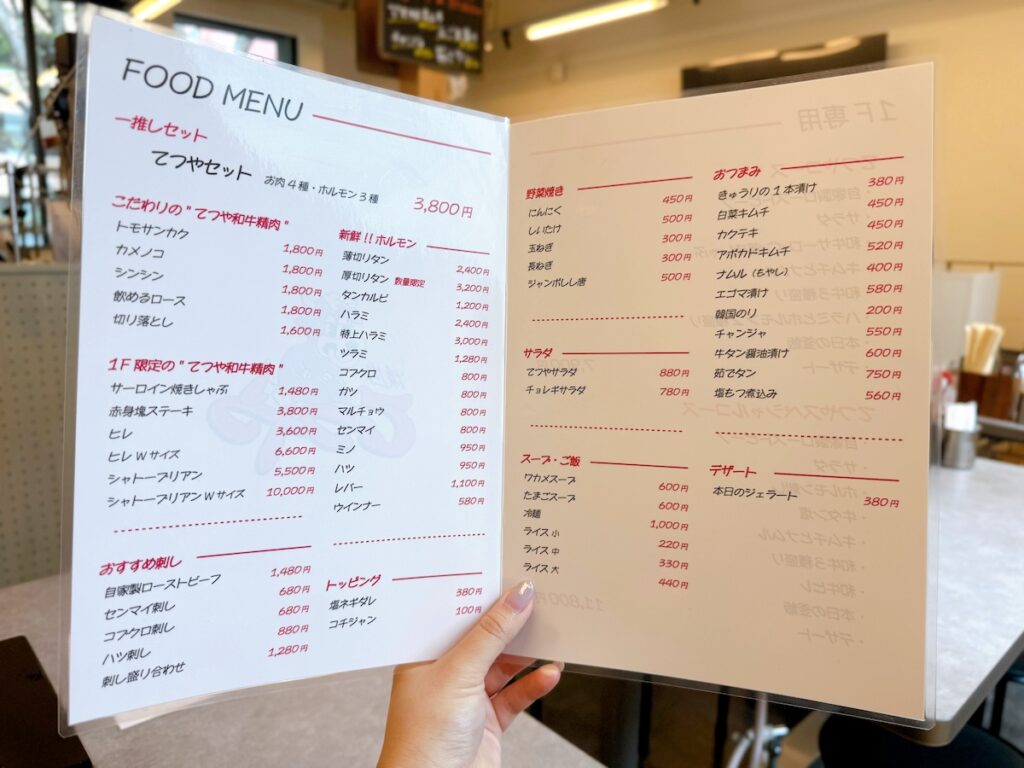 FOOD MENU
一推しセット
てつやセット お肉4種・ホルモン3種 3,800円
こだわりの"てつや和牛精肉"
トモサンカク 1,800円
カメノコ 1,800円
シンシン 1,800円
飲めるロース 1,800円
切り落とし 1,600円
1F限定の"てつや和牛精肉"
サーロイン焼きしゃぶ 1,480円
赤身塊ステーキ 3,800円
ヒレ 3,600円
ヒレWサイズ 6,600円
シャトーブリアン 5,500円
シャトーブリアンWサイズ 10,000円
おすすめ刺し
自家製ローストビーフ 1,480円
センマイ刺し 680円
コブクロ刺し 680円
ハツ刺し 880円
刺し盛り合わせ 1,280円
新鮮!!ホルモン
薄切りタン 2,400円
厚切りタン 数量限定 3,200円
タンカルビ 1,200円
ハラミ 2,400円
特上ハラミ 3,000円
ツラミ 1,280円
コブクロ 800円
ガツ 800円
マルチョウ 800円
センマイ 800円
ミノ 950円
ハツ 950円
レバー 1,100円
ウインナー 580円
トッピング
塩ネギダレ 380円
コチジャン 100円
野菜焼き
にんにく 450円
しいたけ 500円
玉ねぎ 300円
長ねぎ 300円
ジャンボしし唐 500円
サラダ
てつやサラダ 880円
チョレギサラダ 780円
スープ・ご飯
ワカメスープ 600円
たまごスープ 600円
冷麺 1,000円
ライス 小 220円
ライス 中 330円
ライス 大 440円
おつまみ
きゅうりの1本漬け 380円
白菜キムチ 450円
カクテキ 450円
アボカドキムチ 520円
ナムル(もやし) 400円
エゴマ漬け 580円
韓国のり 200円
チャンジャ 550円
牛タン醤油漬け 600円
茹でタン 750円
塩もつ煮込み 560円
デザート
本日のジェラート 380円